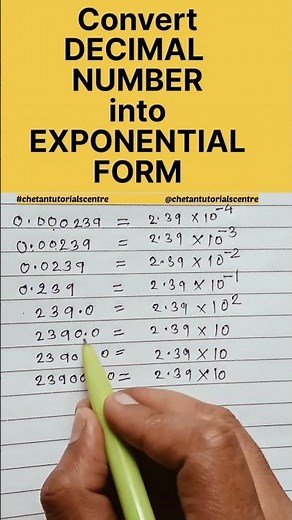 Convert
DECIMAL
NUMBER
into
EXPONENTIAL
FORM
#chetantutorialscentre @chetantutorialscentre
0.000239 = 2.39 × 10⁻⁴
0.00239 = 2.39 × 10⁻³
0.0239 = 2.39 × 10⁻²
0.239 = 2.39 × 10⁻¹
239.0 = 2.39 × 10²
2390.0 = 2.39 × 10
2390 0 = 2.39 × 10
2390 0 = 2.39 × 10